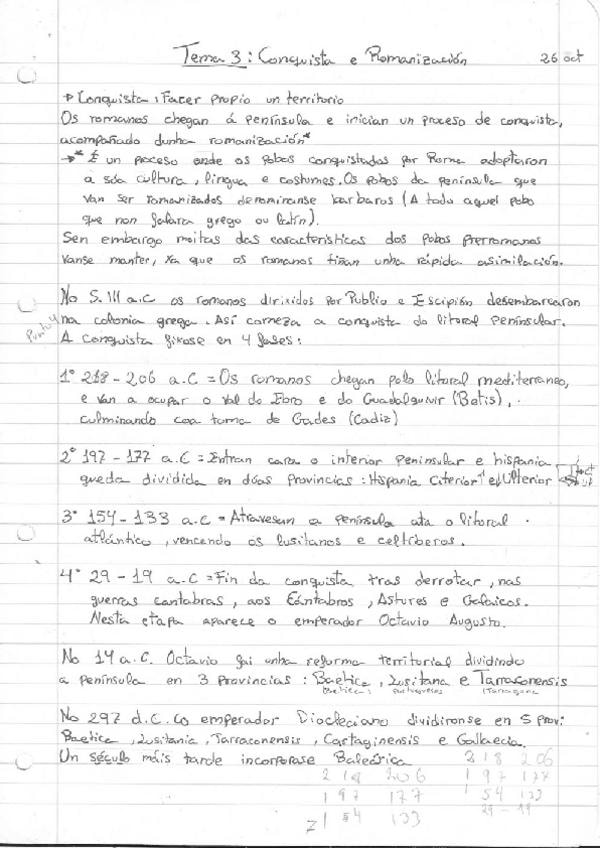 Tema 3: Conquista e Romanización 26 oct
→ Conquista: Facer propio un territorio
Os romanos chegan á península e inician un proceso de conquista,
acompañado dunha romanización*
→* É un proceso onde os pobos conquistados por Roma adoptaron
a súa cultura, lingua e costumes. Os pobos da península que
van ser romanizados denominanse barbaros (A todo aquel pobo
que non falara grego ou latín).
Sen embargo moitas das características dos pobos prerromanos
vanse manter, xa que os romanos tiñan unha rápida asimilación.
No S. III a.C os romanos dirixidos por Publio e Escipión desembarcaron
na colonia grega. Así comeza a conquista do litoral peninsular.
Punto 4
A conquista fíxose en 4 fases:
1º 218 - 206 a.C = Os romanos chegan polo litoral mediterraneo,
e van a ocupar o val do Ebro e do Guadalquivir (Betis),
culminando coa toma de Gades (Cadiz)
2º 197 - 177 a.C = Entran cara o interior Peninsular e hispania
queda dividida en dúas provincias: Hispania Citerior e Ulterior
3º 154 - 133 a.C = Atravesan a península ata o litoral
atlántico, vencendo os lusitanos e celtíberos.
4º 29 - 19 a.C = Fin da conquista tras derrotar, nas
guerras cantabras, aos Cántabros, Astures e Galaicos.
Nesta etapa aparece o emperador Octavio Augusto.
No 14 a.C. Octavio fai unha reforma territorial dividindo
a península en 3 provincias: Baetica, Lusitana e Tarraconensis
No 297 d.C. Co emperador Diocleciano dividironse en 5 provi:
Baetica, Lusitania, Tarraconensis, Cartaginensis e Gallaecia.
Un século máis tarde incorporase Baleárica
218 206
197 177
154 133
29 - 19
218 206
197 177
154 133